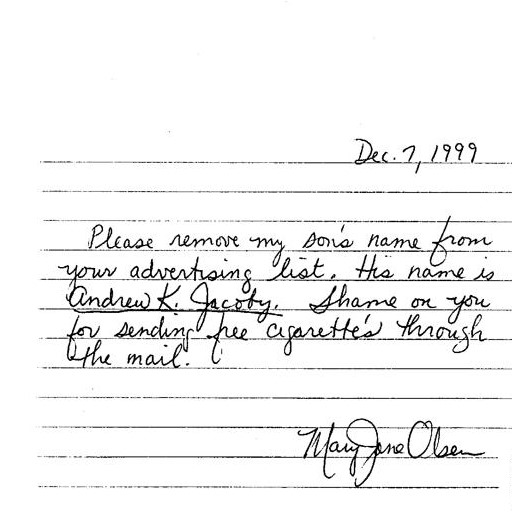 Dec. 7, 1999
Please remove my son's name from
your advertising list. His name is
Andrew K. Jacoby. Shame on you
for sending free cigarette's through
the mail.
Mary Jane Olsen